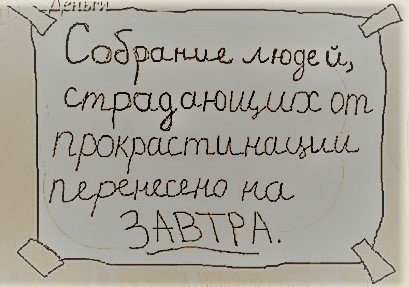 Деньги
Собрание людей,
страдающих от
прокрастинации
перенесено на
ЗАВТРА.